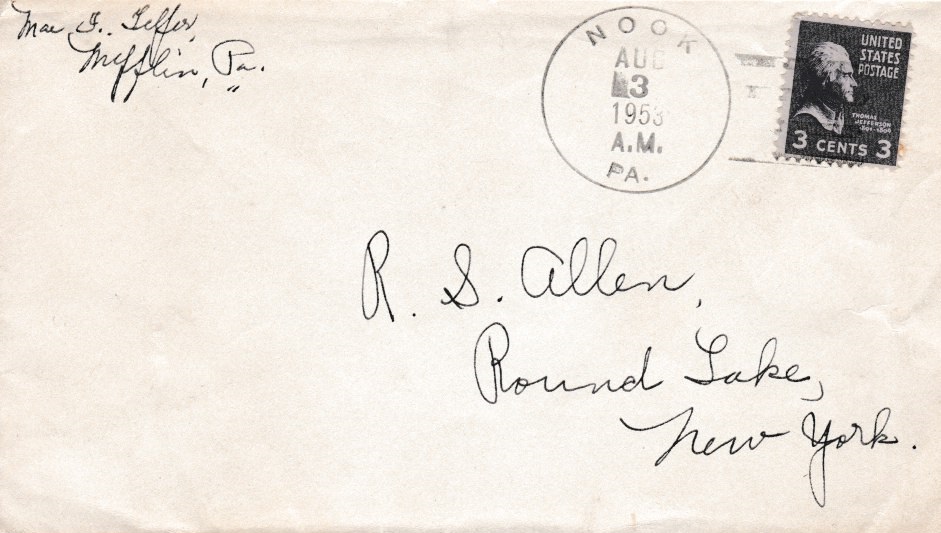 Mae F. Zeffer,
Mifflin, Pa.
NOOK
AUG
3
1953
A.M.
PA.
UNITED
STATES
POSTAGE
THOMAS
JEFFERSON
1801-1809
3 CENTS 3
R. S. Allen,
Round Lake,
New York.